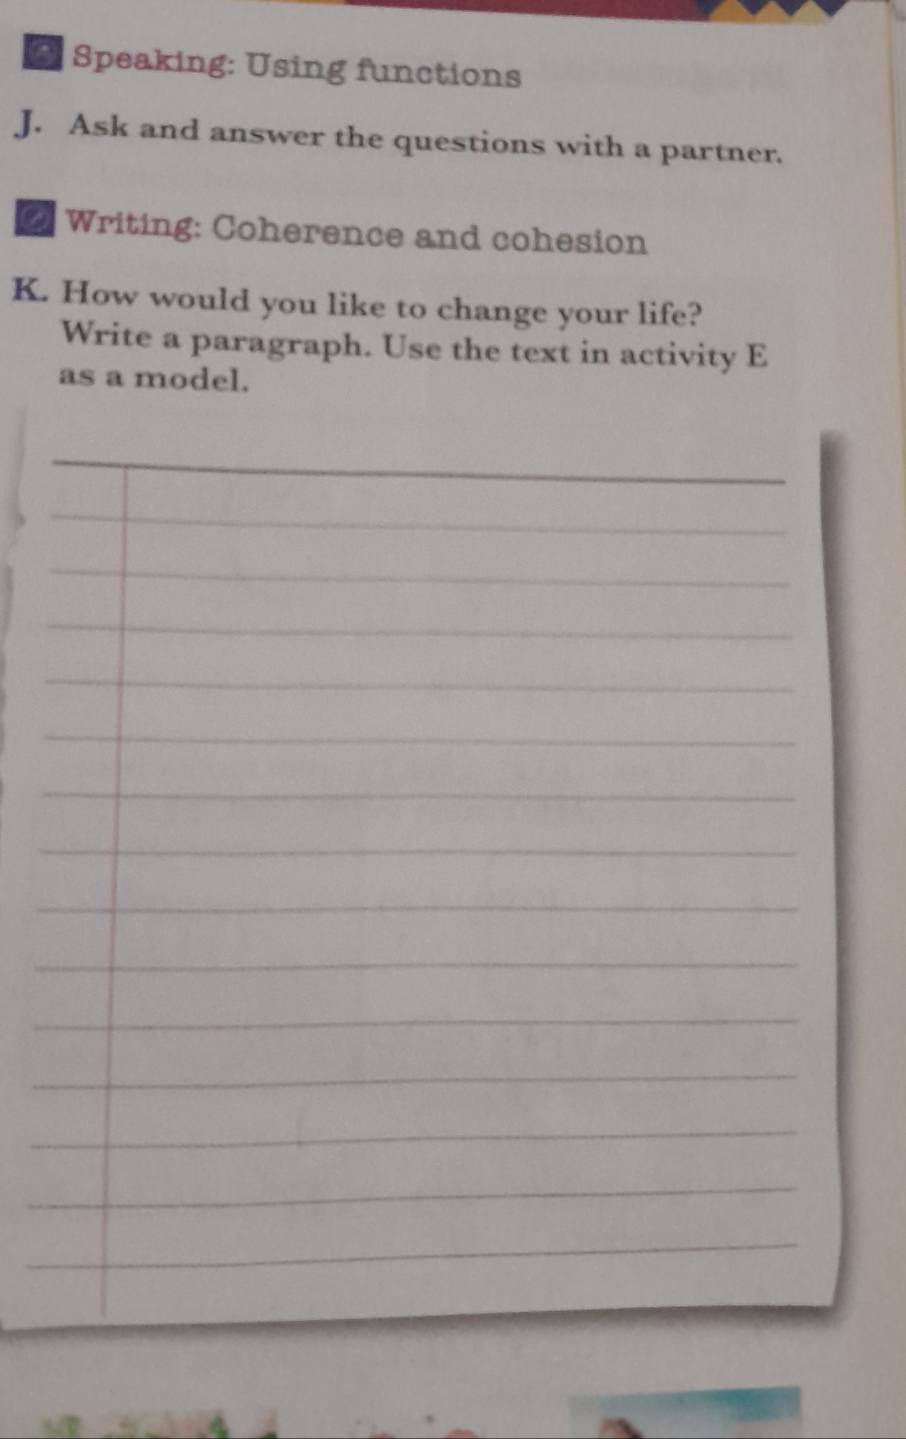 Speaking: Using functions
J. Ask and answer the questions with a partner.
Writing: Coherence and cohesion
K. How would you like to change your life?
Write a paragraph. Use the text in activity E
as a model.